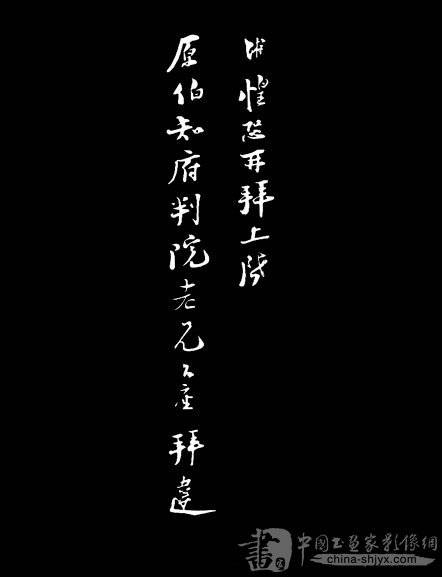 游惶恐再拜上啓
原伯知府判院老兄台座 拜違
書 中國书画家影像網
china-shjyx.com